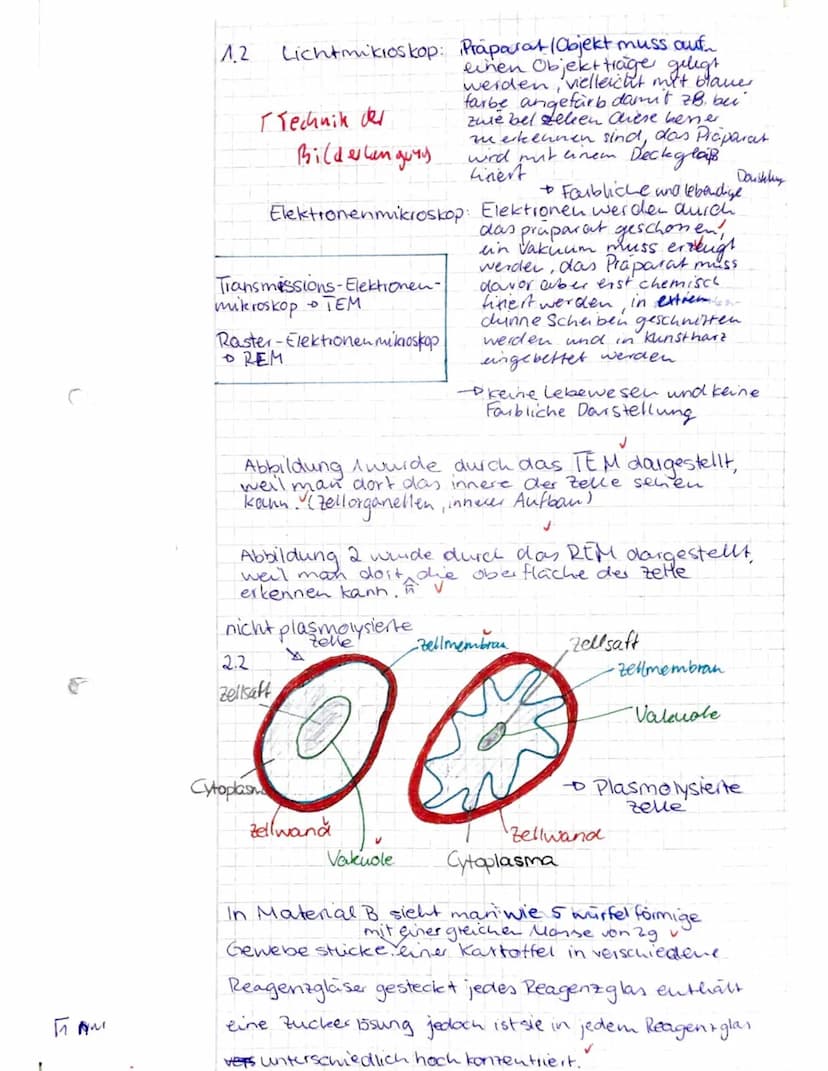 1.2 Lichtmikroskop: Präparat/Objekt muss auf
einen Objektträger gelegt
werden, vielleicht mit blauer
farbe angefärb damit zB. bei
zwiebelzellen diese besser
zu erkennen sind, das Präparat
wird mit einem Deckgläß
fixiert
Γ Technik der
→ Farbliche und lebendige
Darstellung
Elektronenmikroskop: Elektronen werden durch
das präparat geschossen,
ein Vakuum muss erzeugt
werden, das Präparat muss
davor aber erst chemisch
fixiert werden, in extrem
dünne Scheiben geschnitten
werden und in kunstharz
eingebettet werden
Transmissions-Elektronen-
mikroskop → TEM
Raster-Elektronenmikroskop
→ REM
→ keine Lebewesen und keine
Farbliche Darstellung
Abbildung 1 wurde durch das TEM dargestellt,
weil man dort das innere der Zelle sehen
kann. (Zellorganellen, innerer Aufbau)
Abbildung 2 wurde durch das REM dargestellt,
weil man dort die oberfläche der zelle
erkennen kann.
nicht plasmolysierte
zelle
2.2
Zellmembran
Zellsaft
Zellsaft
Zellmembran
Vakuole
Cytoplasma
→ Plasmolysierte
zelle
Zellwand
Zellwand
Vakuole
Cytoplasma
In Material B sieht man wie 5 würfelförmige
mit einer gleichen Masse von 2g
Gewebestücke einer Kartoffel in verschiedene
Reagenzgläser gesteckt jedes Reagenzglas enthält
eine Zuckerlösung jedoch ist sie in jedem Reagenzglas
unterschiedlich hoch konzentriert.